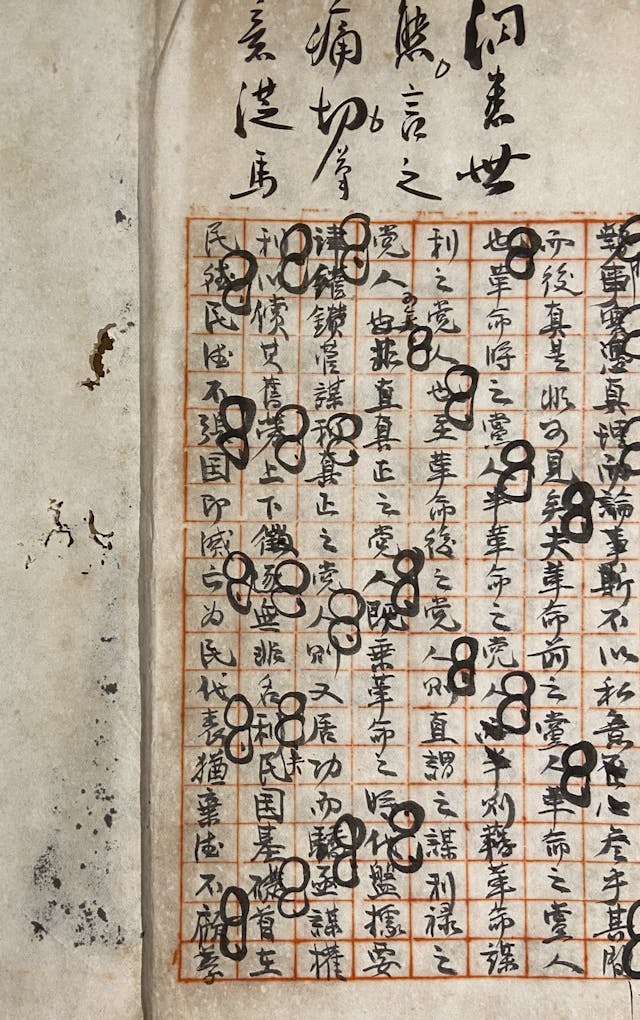 洞悉世
態言之
痛切
意從馬
真理而論事斯不以私意
而後真是非可見矣夫革命前之黨人革命之黨人
也革命時之黨人半革命之党人而半则藉革命謀
利之党人也至革命後之党人则直謂之謀利禄之
党人可矣也非直真正之党人既乘革命之時代盤據要
津鑽營謀利真正之党人则又居功而驕亟謀權
利以償其舊勞上下徵逐無非名利夫民国基礎首在
民德民德不張国即滅亡为民代表猶棄德不顧